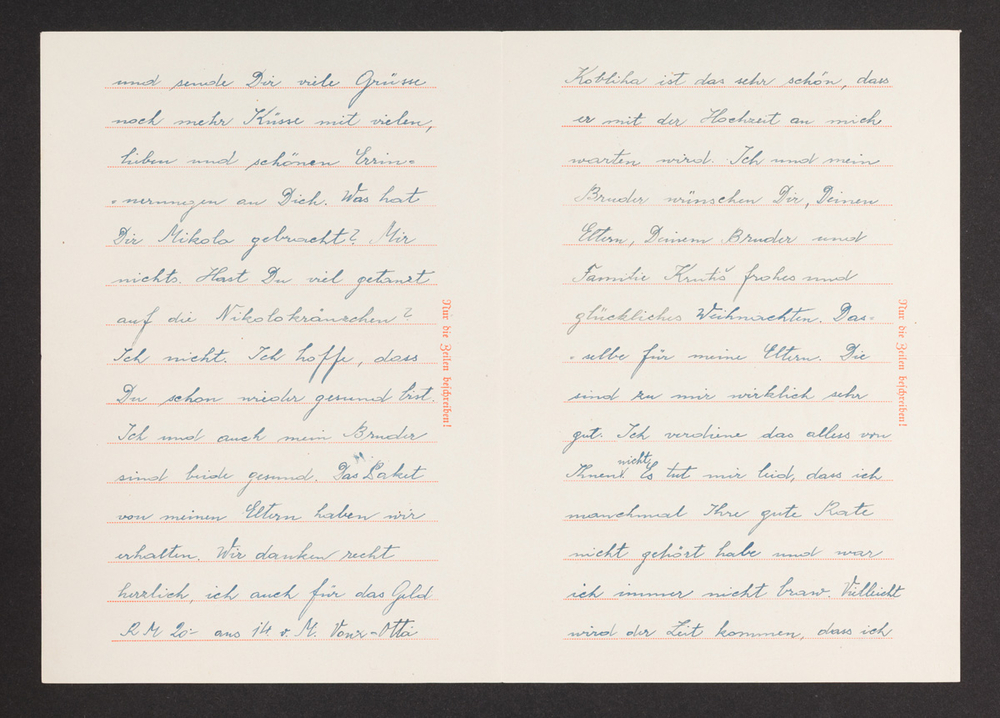 und sende Dir viele Grüsse
noch mehr Küsse mit vielen,
lieben und schönen Errin-
-nerungen an Dich. Was hat
Dir Mikolo gebracht? Mir
nichts. Hast Du viel getanzt
auf die Nikolokränzchen?
Ich nicht. Ich hoffe, dass
Du schon wieder gesund bist.
Ich und auch mein Bruder
sind beide gesund. Das Paket
von meinen Eltern haben wir
erhalten. Wir danken recht
herzlich, ich auch für das Geld
RM 20.- aus 14. v. M. Vom
Nur die Zeilen beschreiben!
Kobliha ist das sehr schön, dass
er mit der Hochzeit an mich
warten wird. Ich und mein
Bruder wünschen Dir, Deinen
Eltern, Deinem Bruder und
Familie frohes und
glückliches Weihnachten. Das-
-selbe für meine Eltern. Die
sind zu mir wirklich sehr
gut. Ich verdiene das alles von
Ihnen nicht. Es tut mir leid, dass ich
manchmal Ihre gute Rate
nicht gehört habe und war
ich immer nicht braw. Vielleicht
wird der Zeit kommen, dass ich
Nur die Zeilen beschreiben!